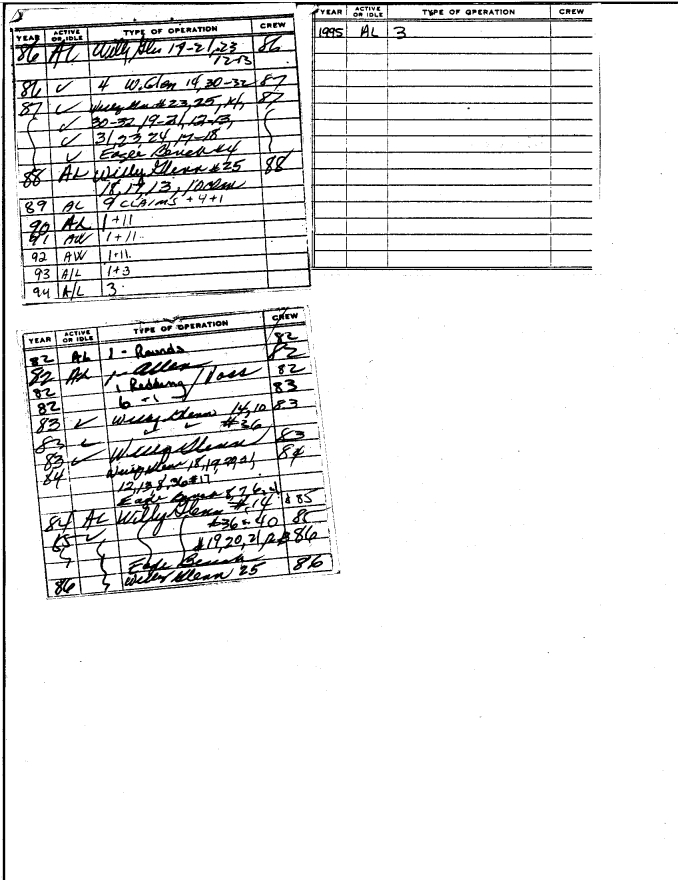 YEAR ACTIVE OR IDLE TYPE OF OPERATION CREW
86 AL Willy Glen 19-21, 23 86
12-13
86 ✓ 4 W. Glen 19, 30-32 87
87 ✓ #23, 25, 87
✓ 30-32, 19-21, 12-13,
✓ 31, 23, 24, 17-18
✓ Eagle Bench #4
88 AL Willy Glenn #25 88
18, 19, 13,
89 AL 9 CLAIMS + 4+1
90 AL 1+11
91 AW 1+11.
92 AW 1+11.
93 A/L 1+3
94 A/L 3.
YEAR ACTIVE OR IDLE TYPE OF OPERATION CREW
1995 AL 3
YEAR ACTIVE OR IDLE TYPE OF OPERATION CREW
82 AL 1 - Rounds 82
82 AL 1- Allen 82
82 1 Redding / Voss 82
82 6 -1 83
83 ✓ Willy Glenn 14, 10 83
83 ✓ ✓ ✓ #36
83 ✓ Willy Glenn 83
84 Willy Glenn 18, 19, 84
12, 13, 8, 36 #17
Eagle Bench 8, 7, 6,
84 AL Willy Glenn #14 85
85 ✓ #36 - 40 85
#19, 20, 21, 86
Eagle Bench
86 Willy Glenn 25 86